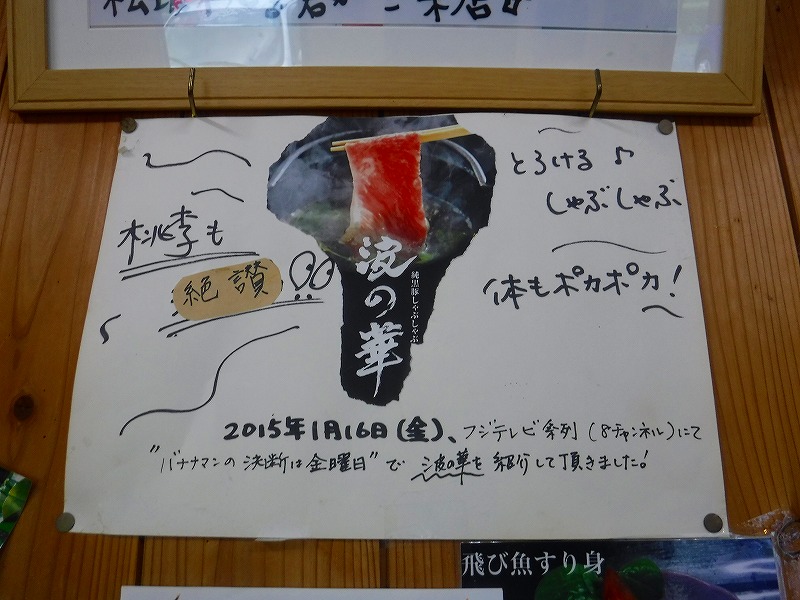 とろける♪
しゃぶしゃぶ
体もポカポカ!
桃李も
絶讃!!
波の華
純黒豚しゃぶしゃぶ
2015年1月16日(金)、フジテレビ系列(8チャンネル)にて
"バナナマンの決断は金曜日"で波の華を紹介して頂きました!
飛び魚すり身